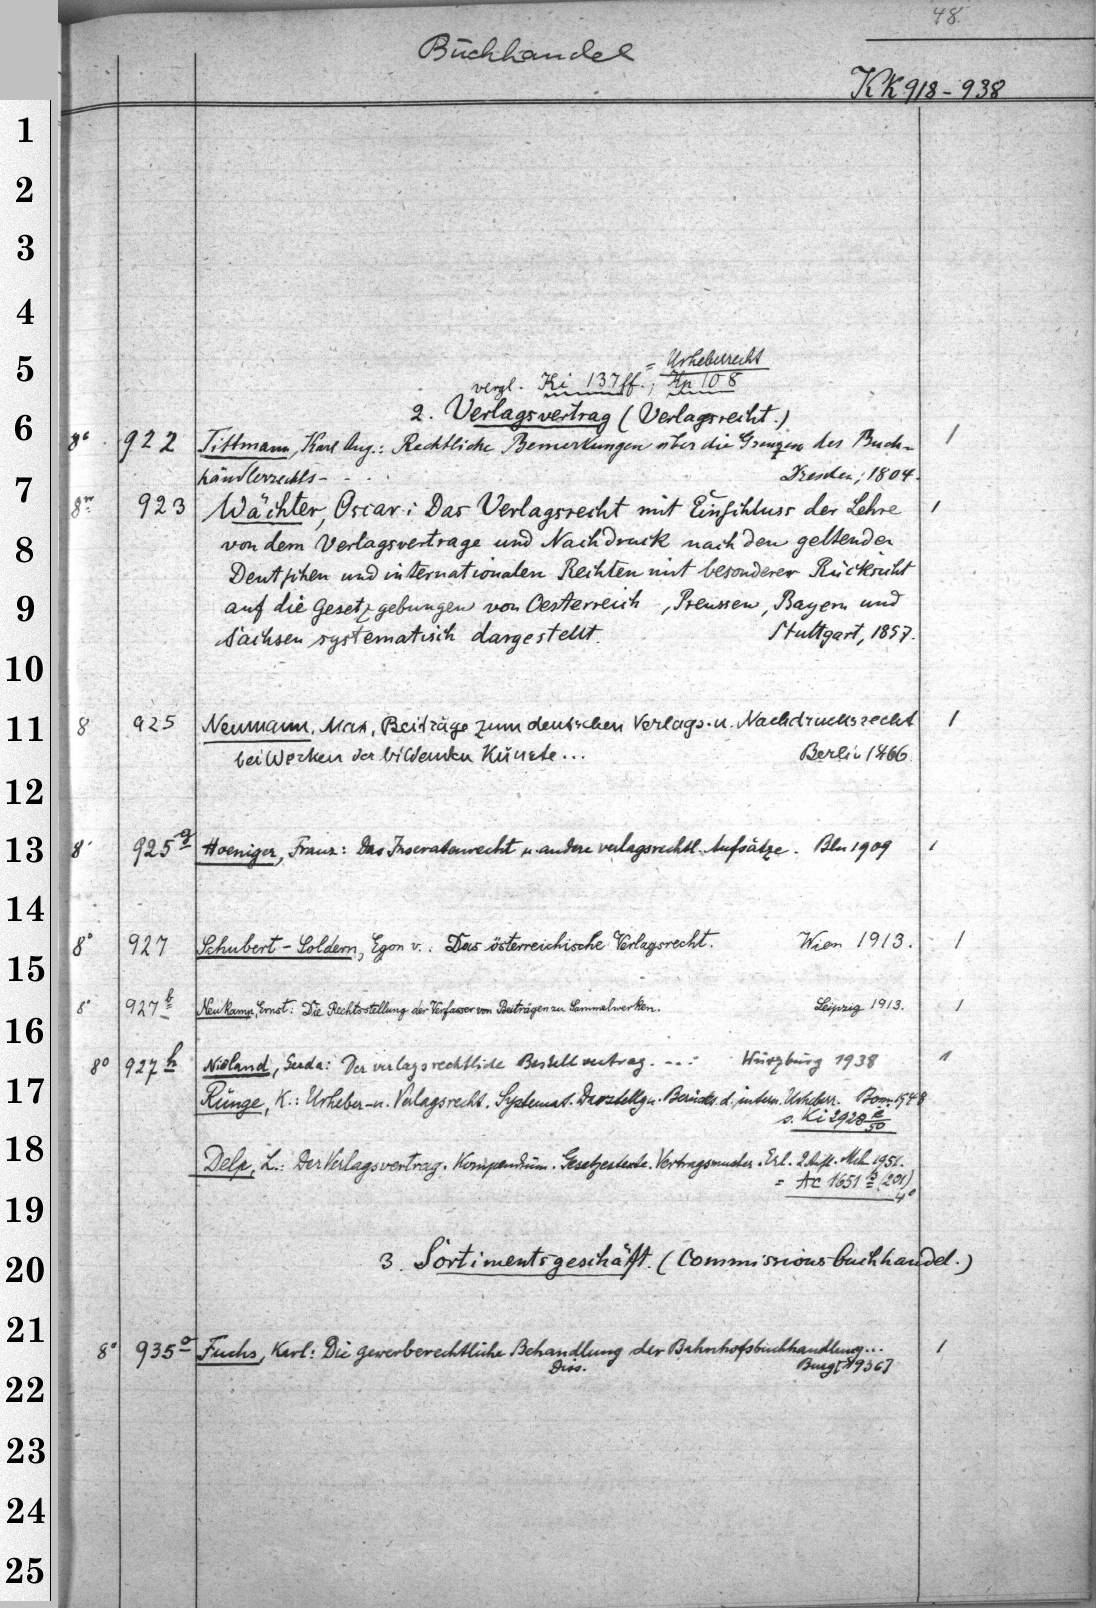 48.
Buchhandel
KK 918-938
1
2
3
4
= Urheberrecht
5
vergl. Ki 137ff.; Kn 108
2. Verlagsvertrag (Verlagsrecht.)
6
8° 922 Tittmann, Karl Aug.: Rechtliche Bemerkungen über die Grenzen des Buch- 1
händlerrechts - Dresden, 1804.
7
8° 923 Wächter, Oscar: Das Verlagsrecht mit Einschluss der Lehre 1
8
von dem Verlagsvertrage und Nachdruck nach den geltenden
Deutschen und internationalen Rechten mit besonderer Rücksicht
9
auf die Gesetzgebungen von Oesterreich, Preussen, Bayern und
Sachsen systematisch dargestellt. Stuttgart, 1857.
10
11
8 925 Neumann, Max, Beiträge zum deutschen Verlags- u. Nachdrucksrecht 1
bei Werken der bildenden Künste... Berlin 1866.
12
13
8° 925 g Hoeniger, Franz: Das Inseratenrecht u. andere verlagsrechtl. Aufsätze. Bln 1909 1
14
8° 927 Schubert-Soldern, Egon v.: Das österreichische Verlagsrecht. Wien 1913. 1
15
8° 927 b Neukamp, Ernst: Die Rechtsstellung der Verfasser von Beiträgen zu Sammelwerken. Leipzig 1913. 1
16
8° 927 h Nieland, Gerda: Der verlagsrechtliche Bestellvertrag. --: Würzburg 1938 1
17
Runge, K.: Urheber- u. Verlagsrecht. Systemat. Darstellg u. Berücks. d. intern. Urheberr. Bonn 1948
s. Ki 2928
18
Delp, L.: Der Verlagsvertrag. Kompendium. Gesetzestexte. Vertragsmuster. Erl. 2. Aufl. Mch 1951.
= Ac 1651 (201)
19
4°
20
3. Sortimentsgeschäft. (Commissionsbuchhandel.)
21
8° 935 a Fuchs, Karl: Die gewerberechtliche Behandlung der Bahnhofsbuchhandlung... 1
Diss. Burg [1936]
22
23
24
25